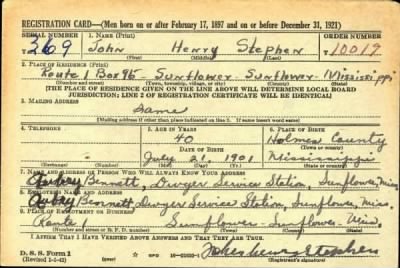 REGISTRATION CARD—(Men born on or after February 17, 1897 and on or before December 31, 1921)
SERIAL NUMBER 1. NAME (Print) ORDER NUMBER
2609 John Henry Stephen 10019
(First) (Middle) (Last)
2. PLACE OF RESIDENCE (Print)
Route 1 Box 95 - Sunflower - Sunflower - Mississippi
(Number and street) (Town, township, village, or city) (County) (State)
[THE PLACE OF RESIDENCE GIVEN ON THE LINE ABOVE WILL DETERMINE LOCAL BOARD
JURISDICTION; LINE 2 OF REGISTRATION CERTIFICATE WILL BE IDENTICAL]
3. MAILING ADDRESS
Same
[Mailing address if other than place indicated on line 2. If same insert word same]
4. TELEPHONE 5. AGE IN YEARS 6. PLACE OF BIRTH
40 Holmes County
DATE OF BIRTH (Town or county)
July 21, 1901 Mississippi
(Exchange) (Number) (Mo.) (Day) (Yr.) (State or country)
7. NAME AND ADDRESS OF PERSON WHO WILL ALWAYS KNOW YOUR ADDRESS
Aubrey Bennett, Dwyer Service Station, Sunflower, Miss.
8. EMPLOYER'S NAME AND ADDRESS
Aubrey Bennett, Dwyer Service Station, Sunflower, Miss.
9. PLACE OF EMPLOYMENT OR BUSINESS
Route 1 Sunflower - Sunflower - Miss.
(Number and street or R. F. D. number) (Town) (County) (State)
I AFFIRM THAT I HAVE VERIFIED ABOVE ANSWERS AND THAT THEY ARE TRUE.
D. S. S. Form 1
(Revised 1-1-42) (over) GPO John Henry Stephen
(Registrant's signature)